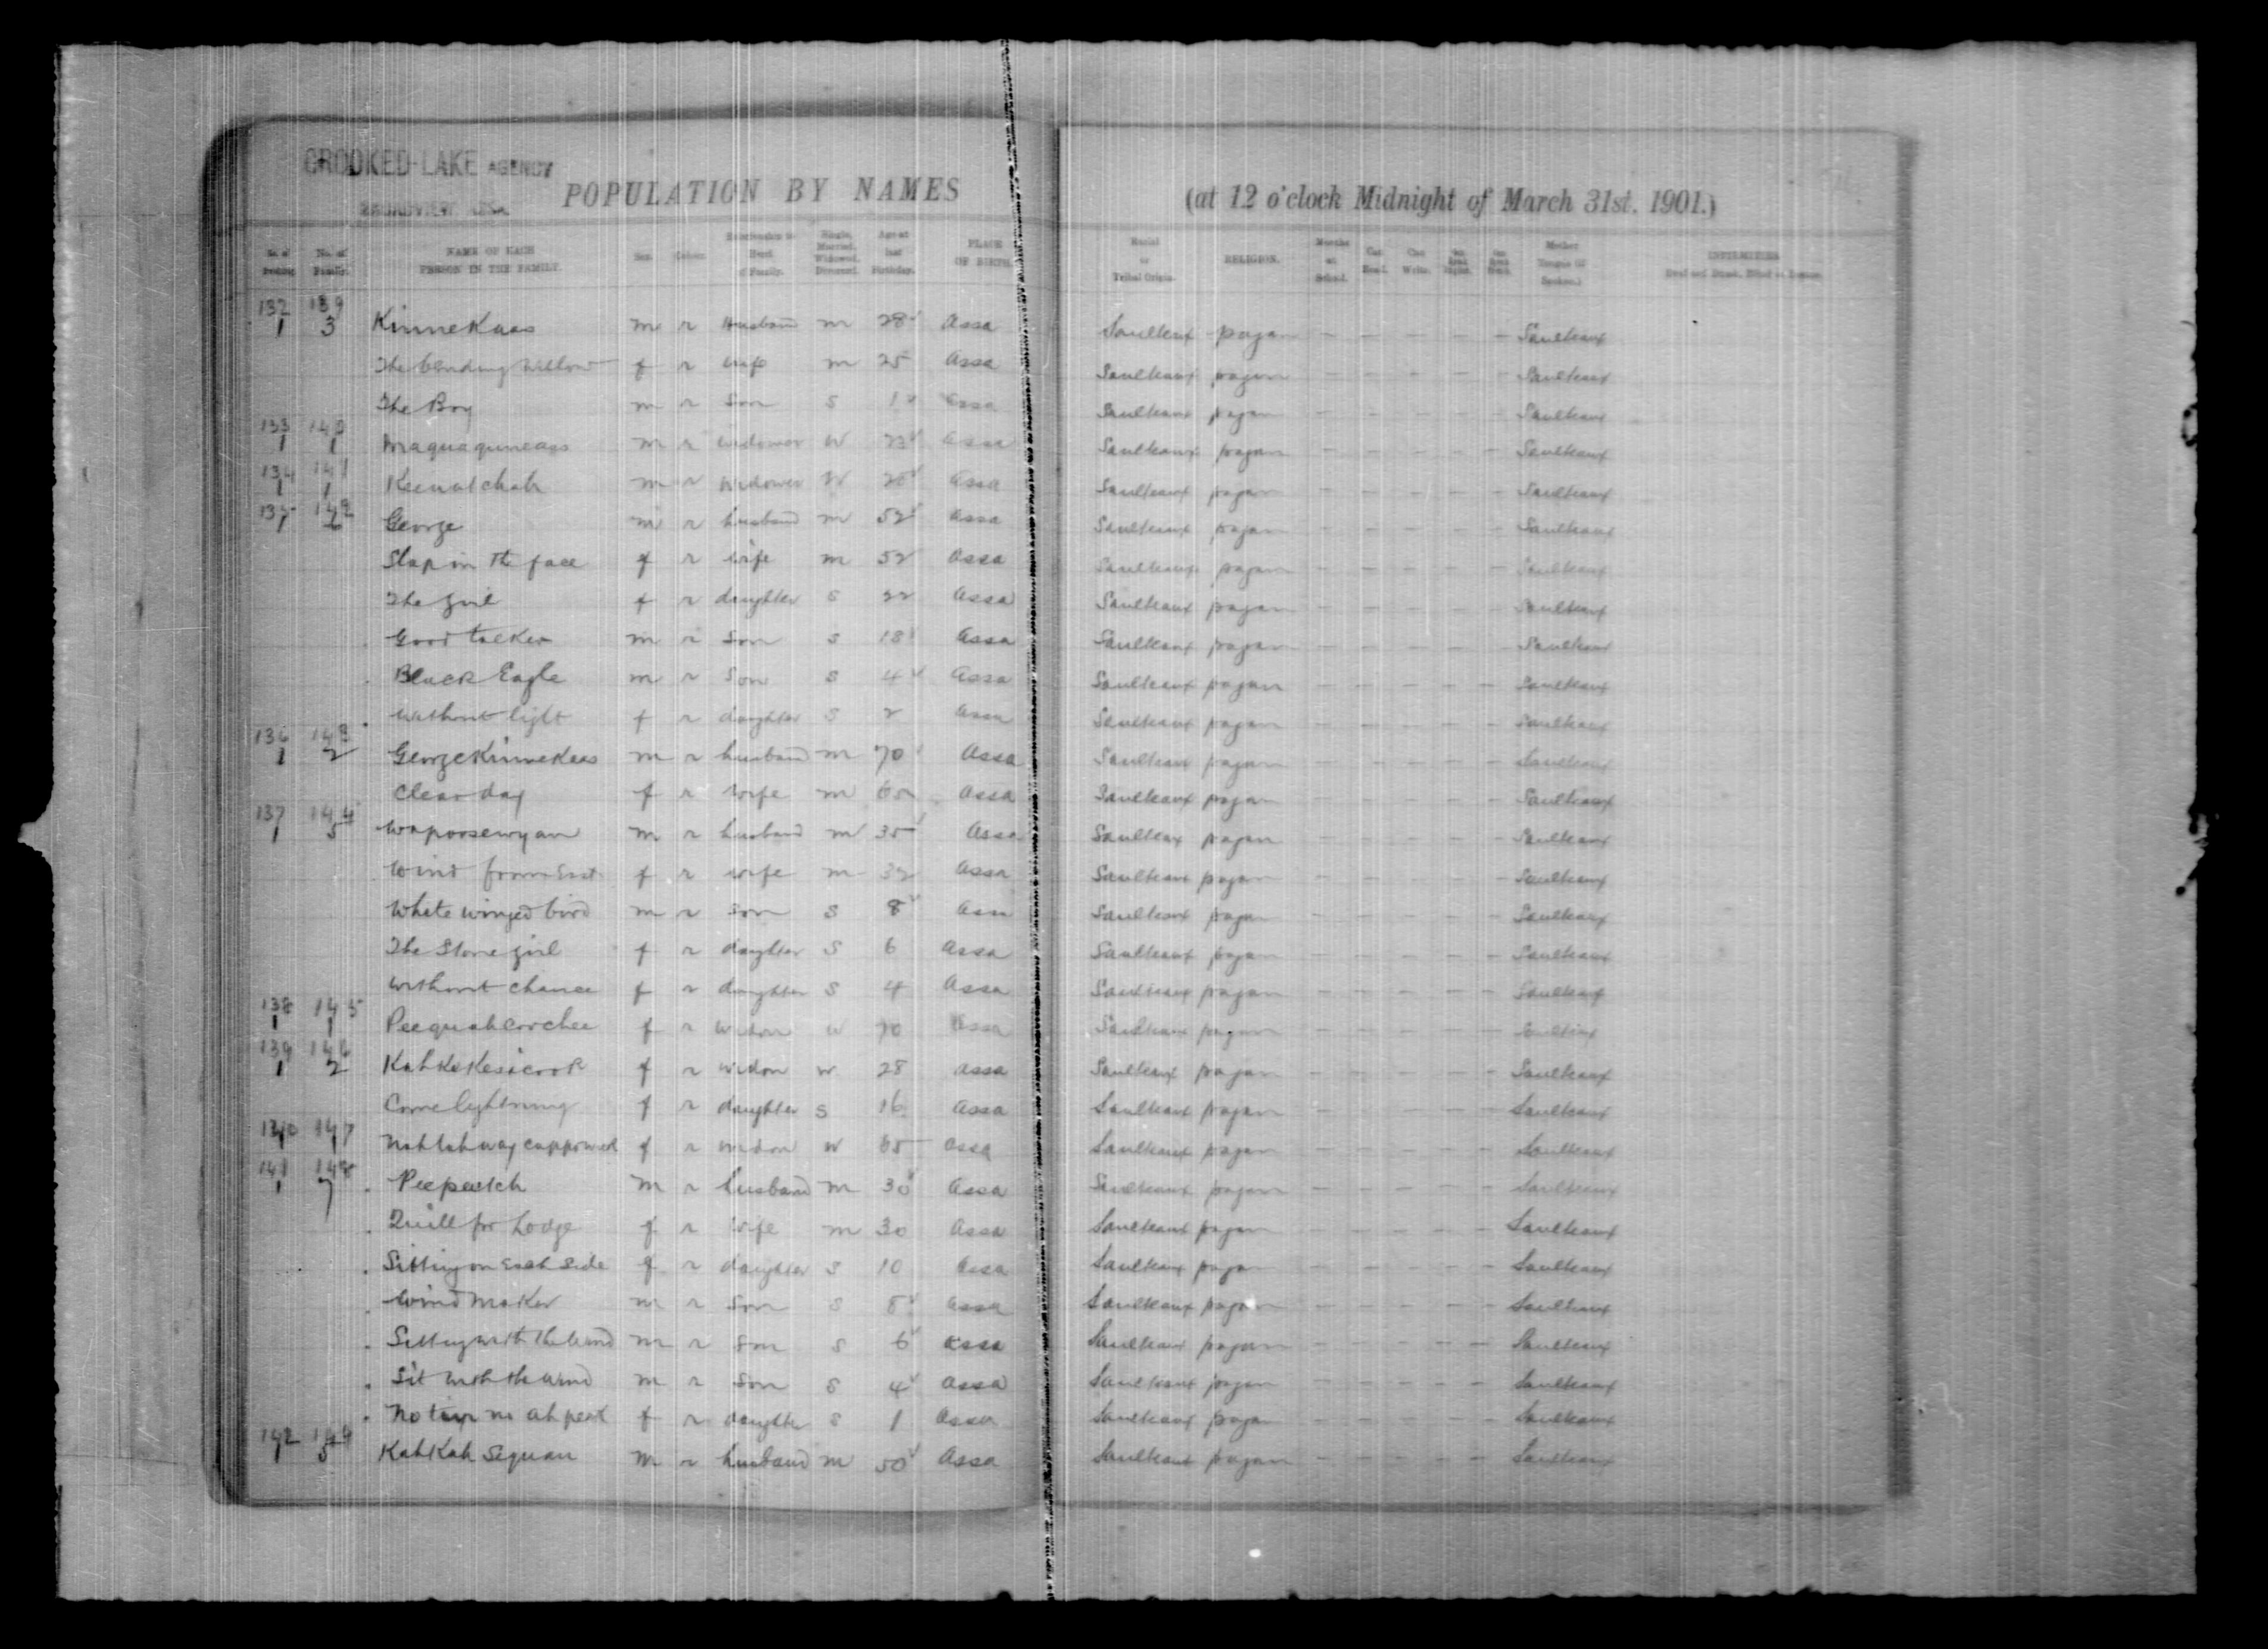 CROOKED-LAKE AGENCY
POPULATION BY NAMES (at 12 o'clock Midnight of March 31st. 1901.)
NAME OF EACH PERSON IN THE FAMILY. Sex. PLACE OF BIRTH. Racial or Tribal Origin. RELIGION. Months at School. Can Read. Can Write. Mother Tongue INFIRMITIES
132 139
1 3 KinneKaas m r Husband m 28 Assa Saulteaux pagan — — — — — Saulteaux
The bending willow f r wife m 25 Assa Saulteaux pagan — — — — — Saulteaux
The Boy m r Son S 1 Assa Saulteaux pagan — — — — — Saulteaux
133 140
1 1 m r widower W Assa Saulteaux pagan — — — — — Saulteaux
134 141
1 1 Keewatchah m r Widower W Assa Saulteaux pagan — — — — — Saulteaux
135 142
1 6 George m r husband m 52 Assa Saulteaux pagan — — — — — Saulteaux
Slap in the face f r wife m 52 Assa Saulteaux pagan — — — — — Saulteaux
The girl f r daughter S 22 Assa Saulteaux pagan — — — — — Saulteaux
Good talker m r Son S 18 Assa Saulteaux pagan — — — — — Saulteaux
Black Eagle m r Son S 4 Assa Saulteaux pagan — — — — — Saulteaux
without light f r daughter S 2 Assa Saulteaux pagan — — — — — Saulteaux
136 143
1 2 George KinneKaas m r husband m 70 Assa Saulteaux pagan — — — — — Saulteaux
Clear day f r wife m Assa Saulteaux pagan — — — — — Saulteaux
137 144
1 5 Wapoosewyan m r husband m 35 Assa Saulteaux pagan — — — — — Saulteaux
Wind from East f r wife m 32 Assa Saulteaux pagan — — — — — Saulteaux
White winged bird m r Son S 8 Assa Saulteaux pagan — — — — — Saulteaux
The Stone girl f r daughter S 6 Assa Saulteaux pagan — — — — — Saulteaux
without chance f r daughter S 4 Assa Saulteaux pagan — — — — — Saulteaux
138 145
1 1 f r Widow W 70 Assa Saulteaux pagan — — — — — Saulteaux
139 146
1 2 KahKeKesicooK f r Widow W 28 Assa Saulteaux pagan — — — — — Saulteaux
Come lightning f r daughter S 16 Assa Saulteaux pagan — — — — — Saulteaux
140 147
1 1 f r widow W 65 Assa Saulteaux pagan — — — — — Saulteaux
141 148
1 7 Peepeetch m r husband m 30 Assa Saulteaux pagan — — — — — Saulteaux
Quill for Lodge f r wife m 30 Assa Saulteaux pagan — — — — — Saulteaux
Sitting on Each Side f r daughter S 10 Assa Saulteaux pagan — — — — — Saulteaux
Wind Maker m r Son S 8 Assa Saulteaux pagan — — — — — Saulteaux
Sitting with the Wind m r Son S 6 Assa Saulteaux pagan — — — — — Saulteaux
Sit with the wind m r Son S 4 Assa Saulteaux pagan — — — — — Saulteaux
f r daughter S 1 Assa Saulteaux pagan — — — — — Saulteaux
142 149
1 5 KahKah Sequan m r husband m 50 Assa Saulteaux pagan — — — — — Saulteaux